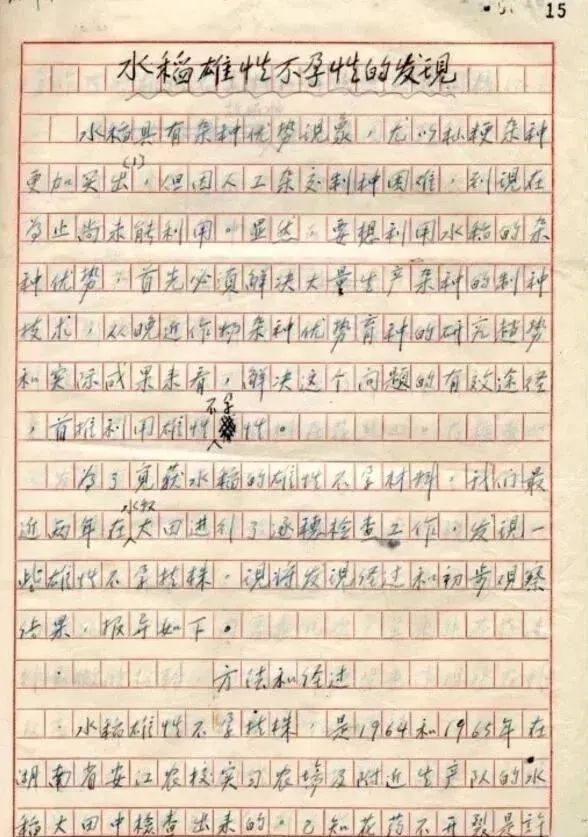 15
水稻雄性不孕性的发現
水稻具有杂种优势現象，尤以籼粳杂种
更加突出(1)，但因人工杂交制种困难，到現在
為止尚未能利用。显然，要想利用水稻的杂
种优势，首先必須解决大量生产杂种的制种
技术，从晚近作物杂种优势育种的研究趋势
和实际成果来看，解决这个问題的有效途径
，首推利用雄性不孕性。
为了覓获水稻的雄性不孕材料，我们最
近两年在水稻大田进行了逐穗检查工作，发現一
些雄性不孕植株，現将发現经过和初步观察
结果，报导如下。
方法和经过
水稻雄性不孕植株，是1964和1965年在
湖南省安江农校实习农場及附近生产队的水
稻大田中检查出来的，已知花药不开裂是許